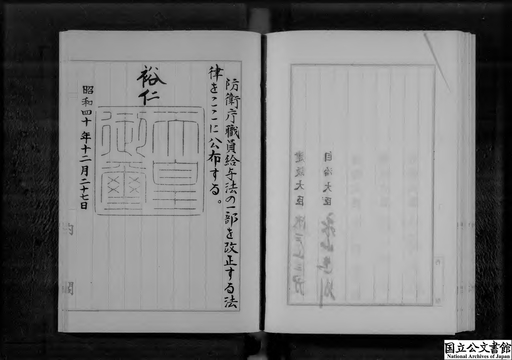 防衛庁職員給与法の一部を改正する法
律をここに公布する。
裕仁
天皇
御璽
昭和四十年十二月二十七日
内
閣
自治大臣
建設大臣
国立公文書館
National Archives of Japan